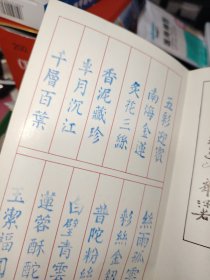 五彩迎雲
南海金蓮
炙花三絲
香泥藏珍
半月沉江
千層百葉
絲雨孤雲
彩絲金
普陀粉絲
白璧青雲
蓮蓉酥酡
五潔福